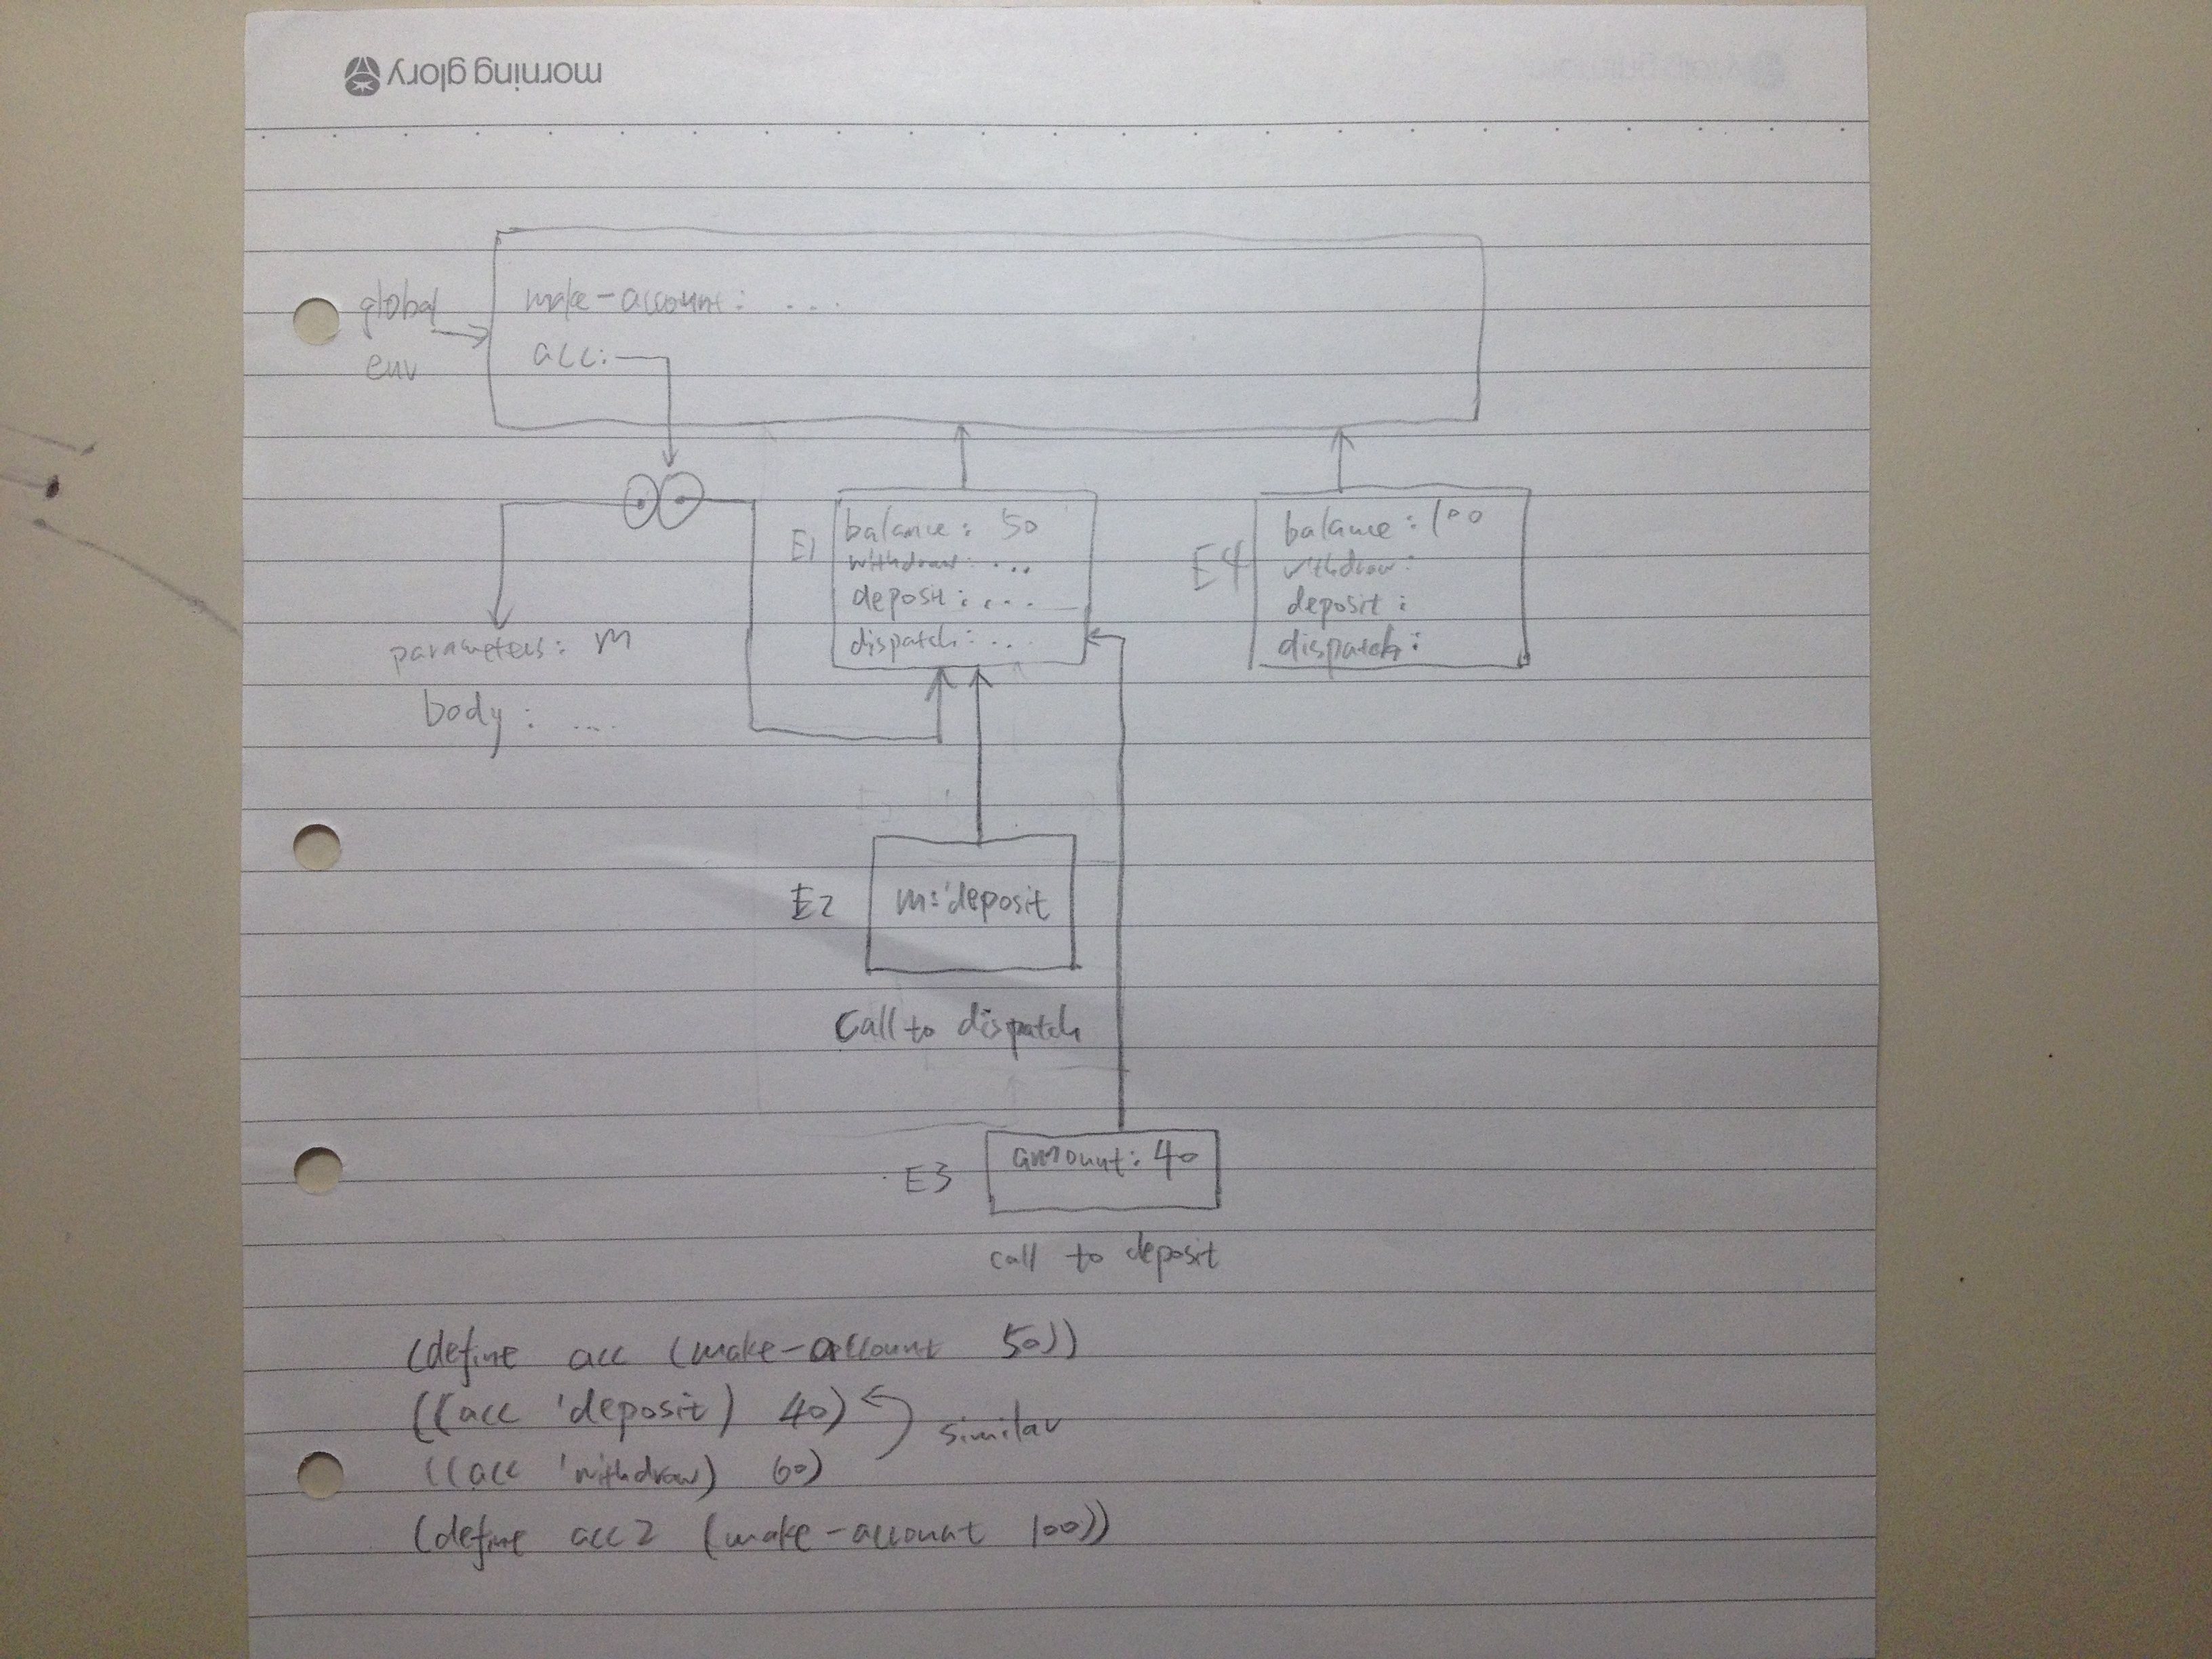 morning glory
global
env
make-account: ....
acc:
E1
balance: 50
withdraw: ...
deposit: ....
dispatch: ...
E4
balance: 100
withdraw:
deposit:
dispatch:
parameters: m
body: ....
E2
m: 'deposit
Call to dispatch
E3
amount: 40
call to deposit
(define acc (make-account 50))
((acc 'deposit) 40)
similar
((acc 'withdraw) 60)
(define acc2 (make-account 100))